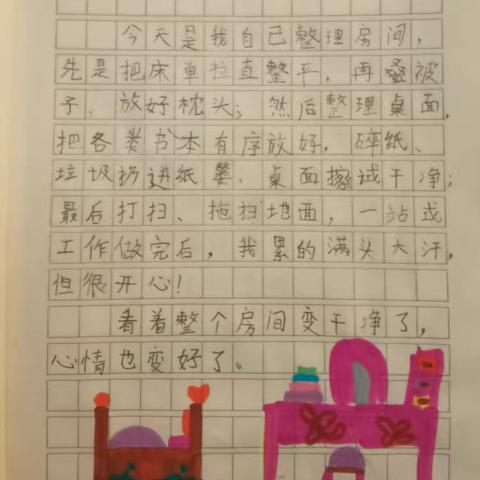 今天是我自己整理房间，
先是把床单拉直整平，再叠被
子，放好枕头；然后整理桌面，
把各类书本有序放好，碎纸、
垃圾扔进纸篓，桌面擦试干净；
最后打扫、拖扫地面，一站式
工作做完后，我累的满头大汗，
但很开心！
看着整个房间变干净了，
心情也变好了。